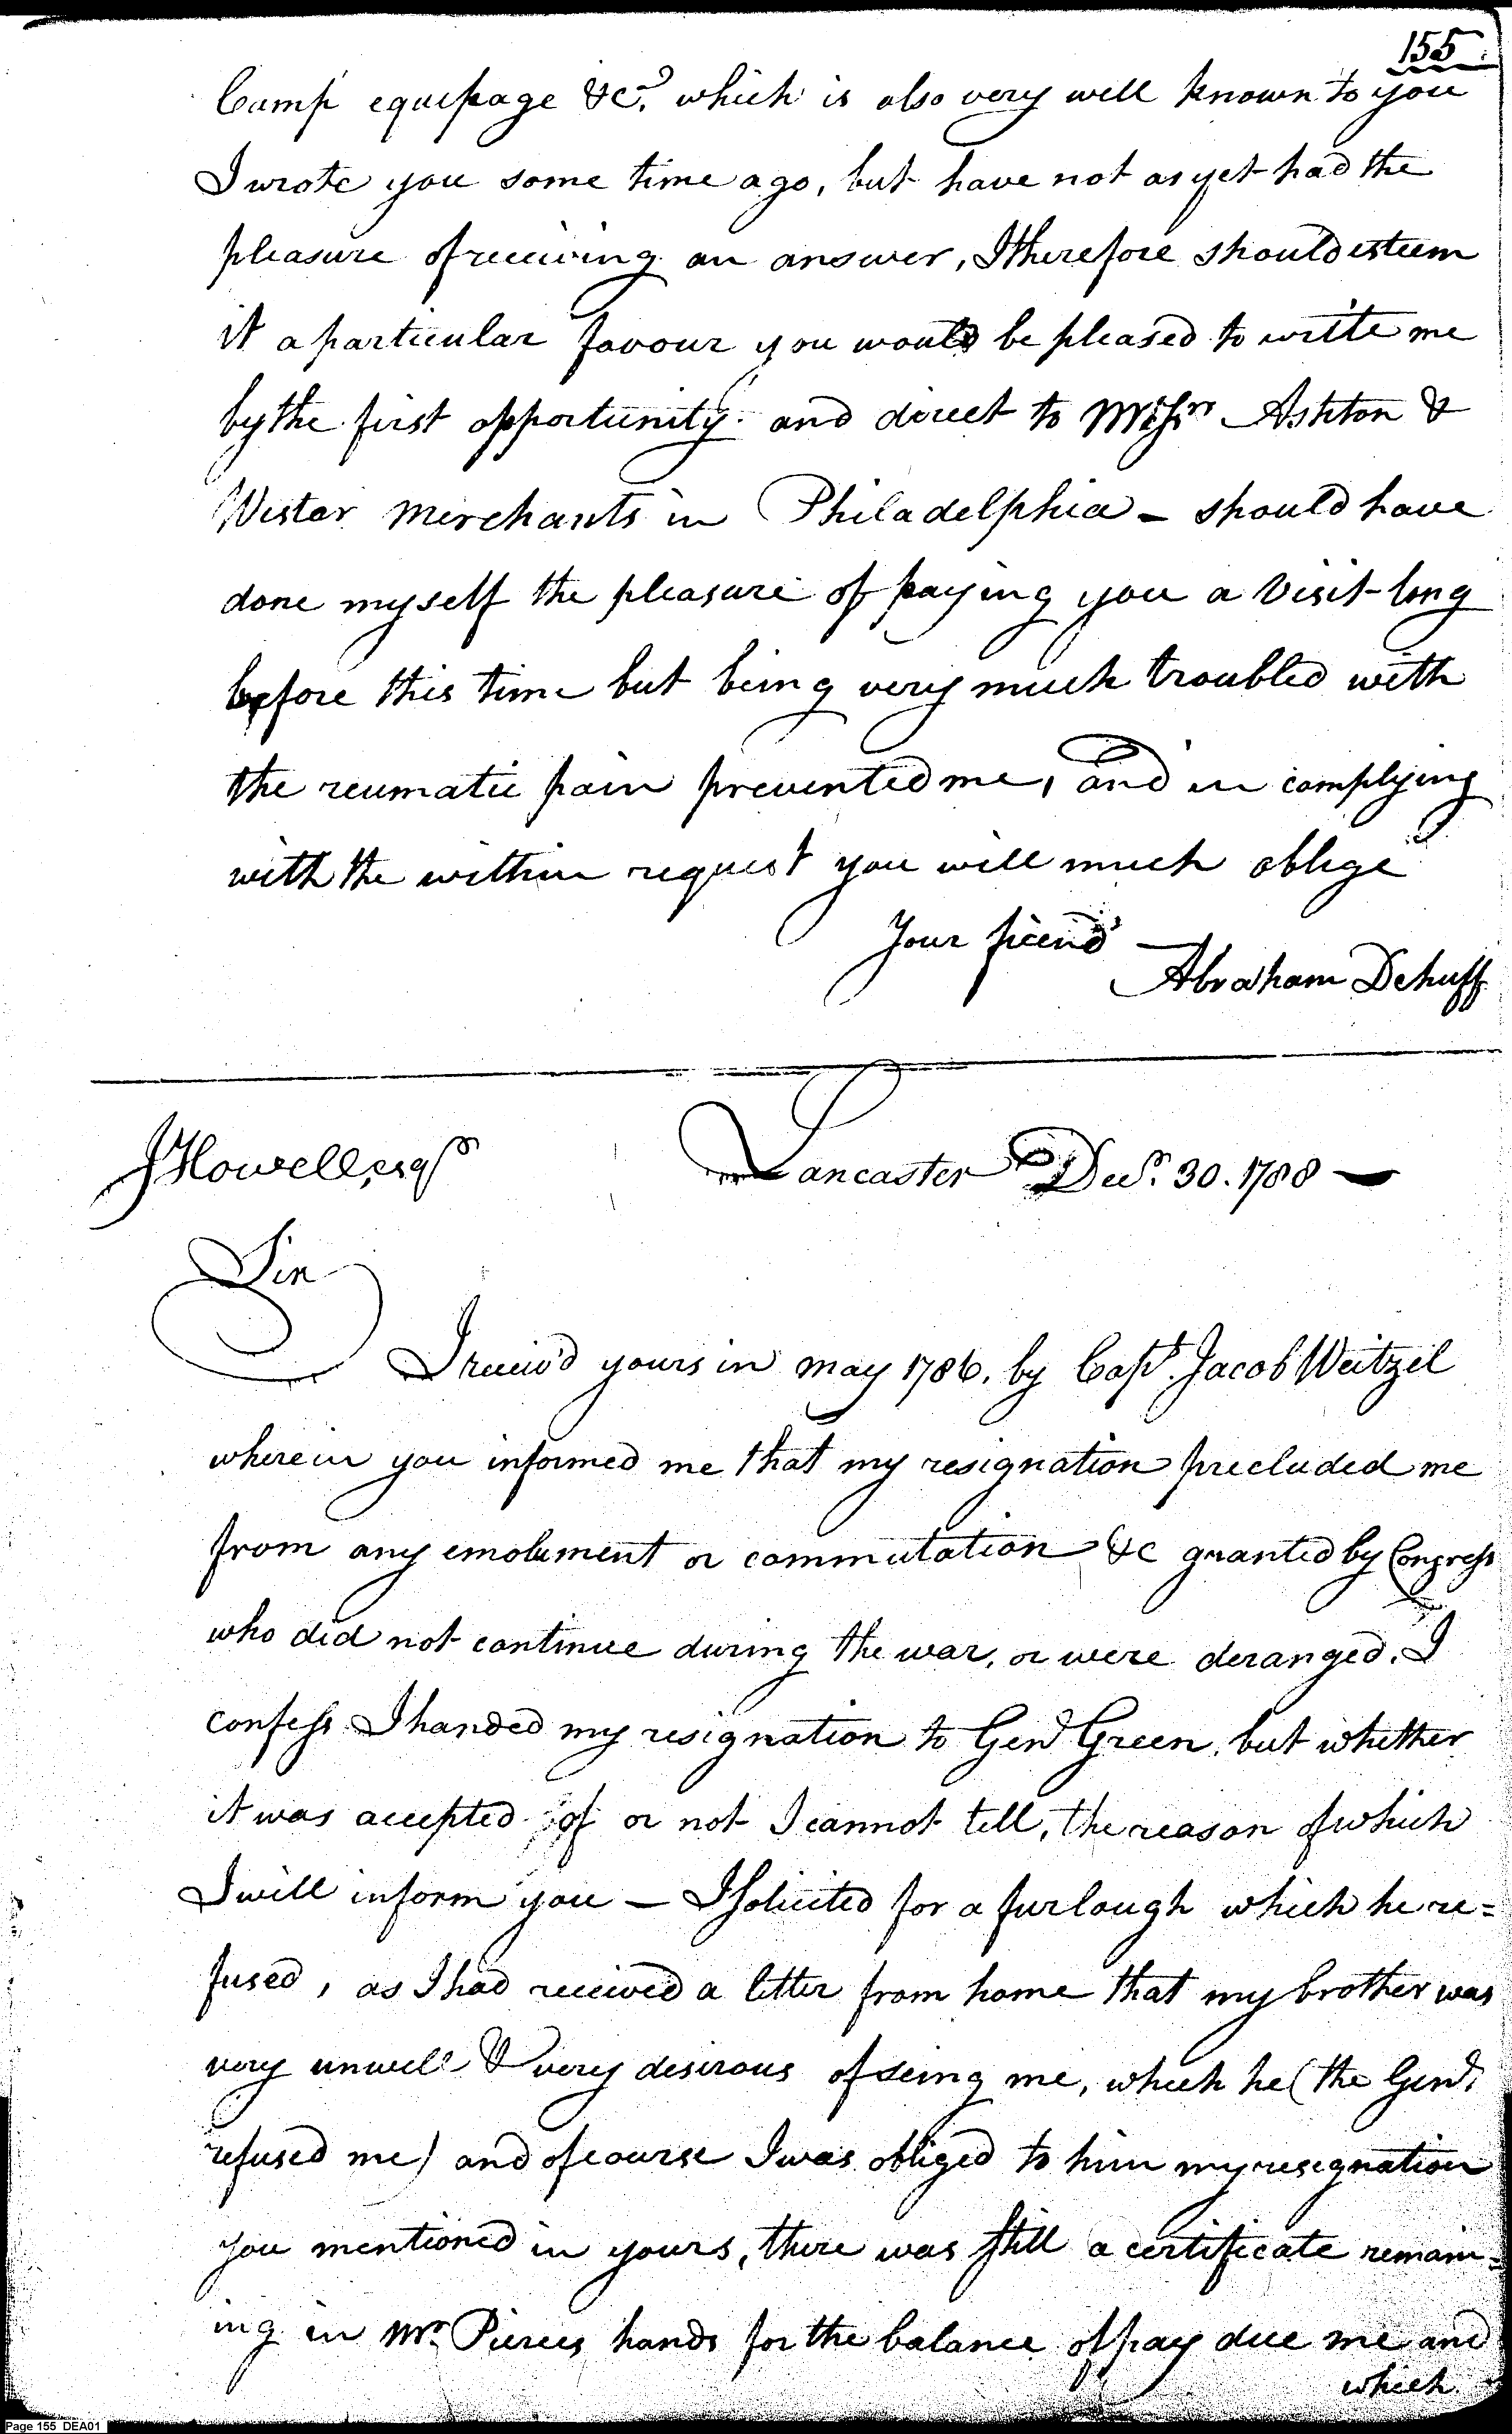 155
Camp equipage &c.a which is also very well known to you
I wrote you some time ago, but have not as yet had the
pleasure of receiving an answer, I therefore should esteem
it a particular favour you would be pleased to write me
by the first opportunity. and direct to Messrs Ashton &
Wistar Merchants in Philadelphia - should have
done myself the pleasure of paying you a visit long
before this time but being very much troubled with
the reumatic pain prevented me, and in complying
with the within request you will much oblige
Your friend —
Abraham Dehuff
J Howell, esqr
Lancaster Decr. 30. 1788 —
Sir
I receiv'd yours in may 1786. by Capt. Jacob Weitzel
wherein you informed me that my resignation precluded me
from any emolument or commutation &c granted by Congress
who did not continue during the war, or were deranged. I
confess I handed my resignation to Genl Green, but whether
it was accepted of or not I cannot tell, the reason of which
I will inform you — I solicited for a furlough which he re=
fused, as I had received a letter from home that my brother was
very unwell & very desirous of seing me, which he (the Genl.
refused me) and of course I was obliged to him my resignation
you mentioned in yours, there was still a certificate remain=
ing in Mr. Pierces hands for the balance of pay due me and
which
Page 155 DEA01